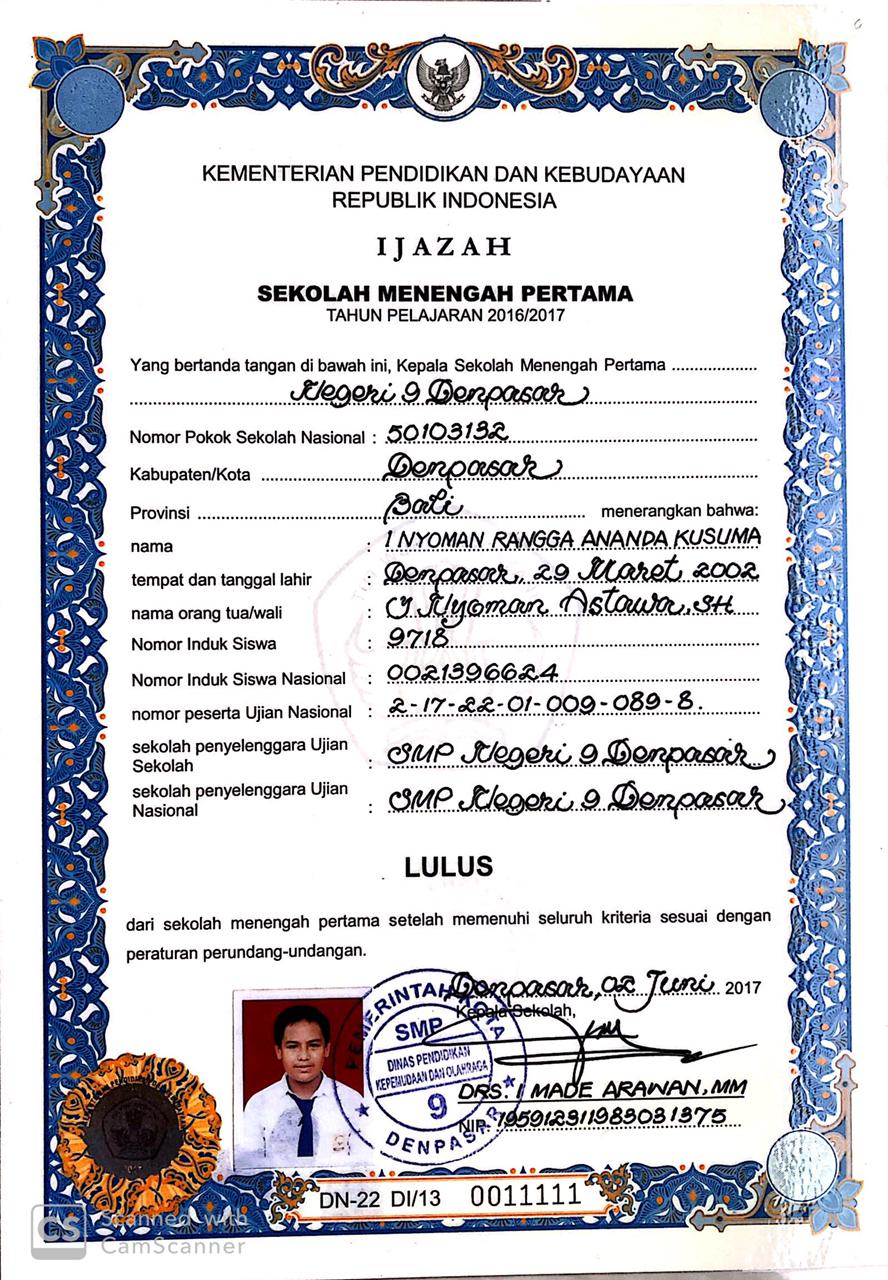 KEMENTERIAN PENDIDIKAN DAN KEBUDAYAAN
REPUBLIK INDONESIA
IJAZAH
SEKOLAH MENENGAH PERTAMA
TAHUN PELAJARAN 2016/2017
Yang bertanda tangan di bawah ini, Kepala Sekolah Menengah Pertama
Negeri 9 Denpasar
Nomor Pokok Sekolah Nasional : 50103132
Kabupaten/Kota Denpasar
Provinsi Bali menerangkan bahwa:
nama : I NYOMAN RANGGA ANANDA KUSUMA
tempat dan tanggal lahir : Denpasar, 29 Maret 2002
nama orang tua/wali : I Nyoman Astawa, SH
Nomor Induk Siswa : 9718
Nomor Induk Siswa Nasional : 0021396624
nomor peserta Ujian Nasional : 2-17-22-01-009-089-8.
sekolah penyelenggara Ujian
Sekolah : SMP Negeri 9 Denpasar
sekolah penyelenggara Ujian
Nasional : SMP Negeri 9 Denpasar
LULUS
dari sekolah menengah pertama setelah memenuhi seluruh kriteria sesuai dengan
peraturan perundang-undangan.
Denpasar, 02 Juni 2017
Kepala Sekolah,
PEMERINTAH KOTA
SMP
DINAS PENDIDIKAN
KEPEMUDAAN DAN OLAHRAGA
9
DENPASAR
DRS. I MADE ARAWAN, MM
NIP. 195912311983031375
DN-22 DI/13 0011111
CS Scanned with
CamScanner